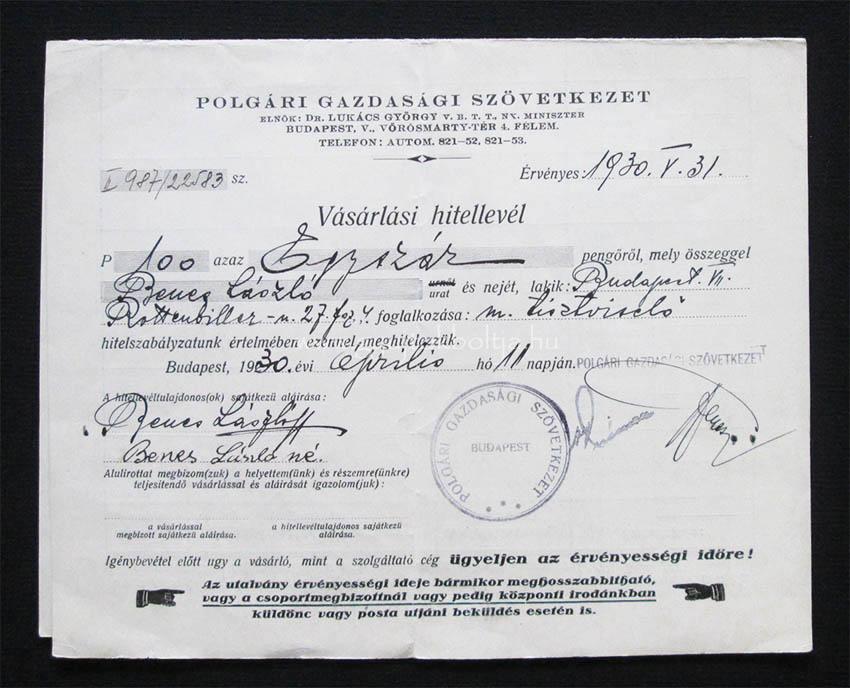 POLGÁRI GAZDASÁGI SZÖVETKEZET
ELNÖK: DR. LUKÁCS GYÖRGY V. B. T. T., NY. MINISZTER
BUDAPEST, V., VÖRÖSMARTY-TÉR 4. FÉLEM.
TELEFON: AUTOM. 821-52, 821-53.
I 987/22583 sz.
Érvényes: 1930. V. 31.
Vásárlási hitellevél
P 100 azaz Egyszáz pengőről, mely összeggel
Bences László urnőt urat és nejét, lakik: Budapest. VII.
Rottenbiller-u. 27. fsz. 4 foglalkozása: m. tisztviselő
hitelszabályzatunk értelmében ezennel meghitelezzük.
Budapest, 1930. évi április hó 11 napján.
POLGÁRI GAZDASÁGI SZÖVETKEZET
A hitellevéltulajdonos(ok) sajátkezű aláírása:
Bences László
Bences László né.
POLGÁRI GAZDASÁGI SZÖVETKEZET
BUDAPEST
Alulirottat megbizom(zuk) a helyettem(ünk) és részemre(ünkre)
teljesitendő vásárlással és aláirását igazolom(juk):
a vásárlással
megbizott sajátkezű aláirása.
a hitellevéltulajdonos sajátkezű
aláirása.
Igénybevétel előtt ugy a vásárló, mint a szolgáltató cég ügyeljen az érvényességi időre!
Az utalvány érvényességi ideje bármikor meghosszabbitható,
vagy a csoportmegbizottnál vagy pedig központi irodánkban
küldönc vagy posta utjáni beküldés esetén is.